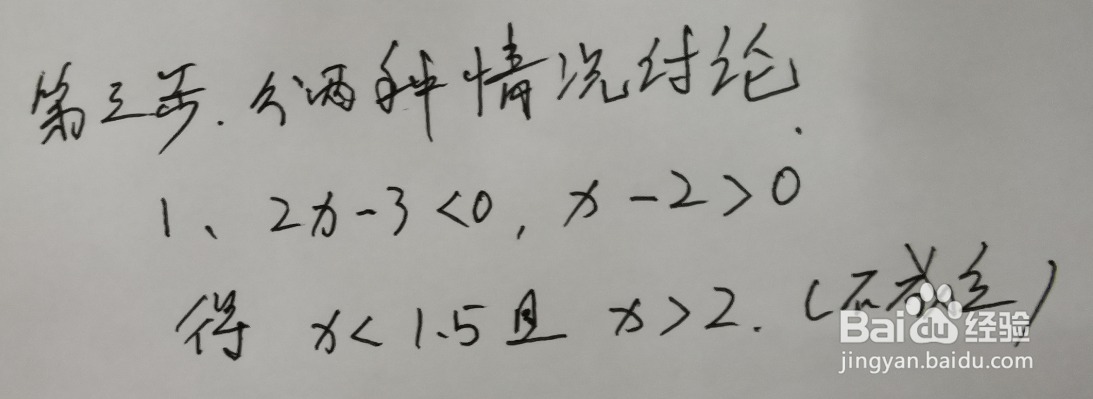 第三步.分两种情况讨论.
1、2x-3<0,x-2>0
得 x<1.5且 x>2.(不成立)
Baidu经验
jingyan.baidu.com